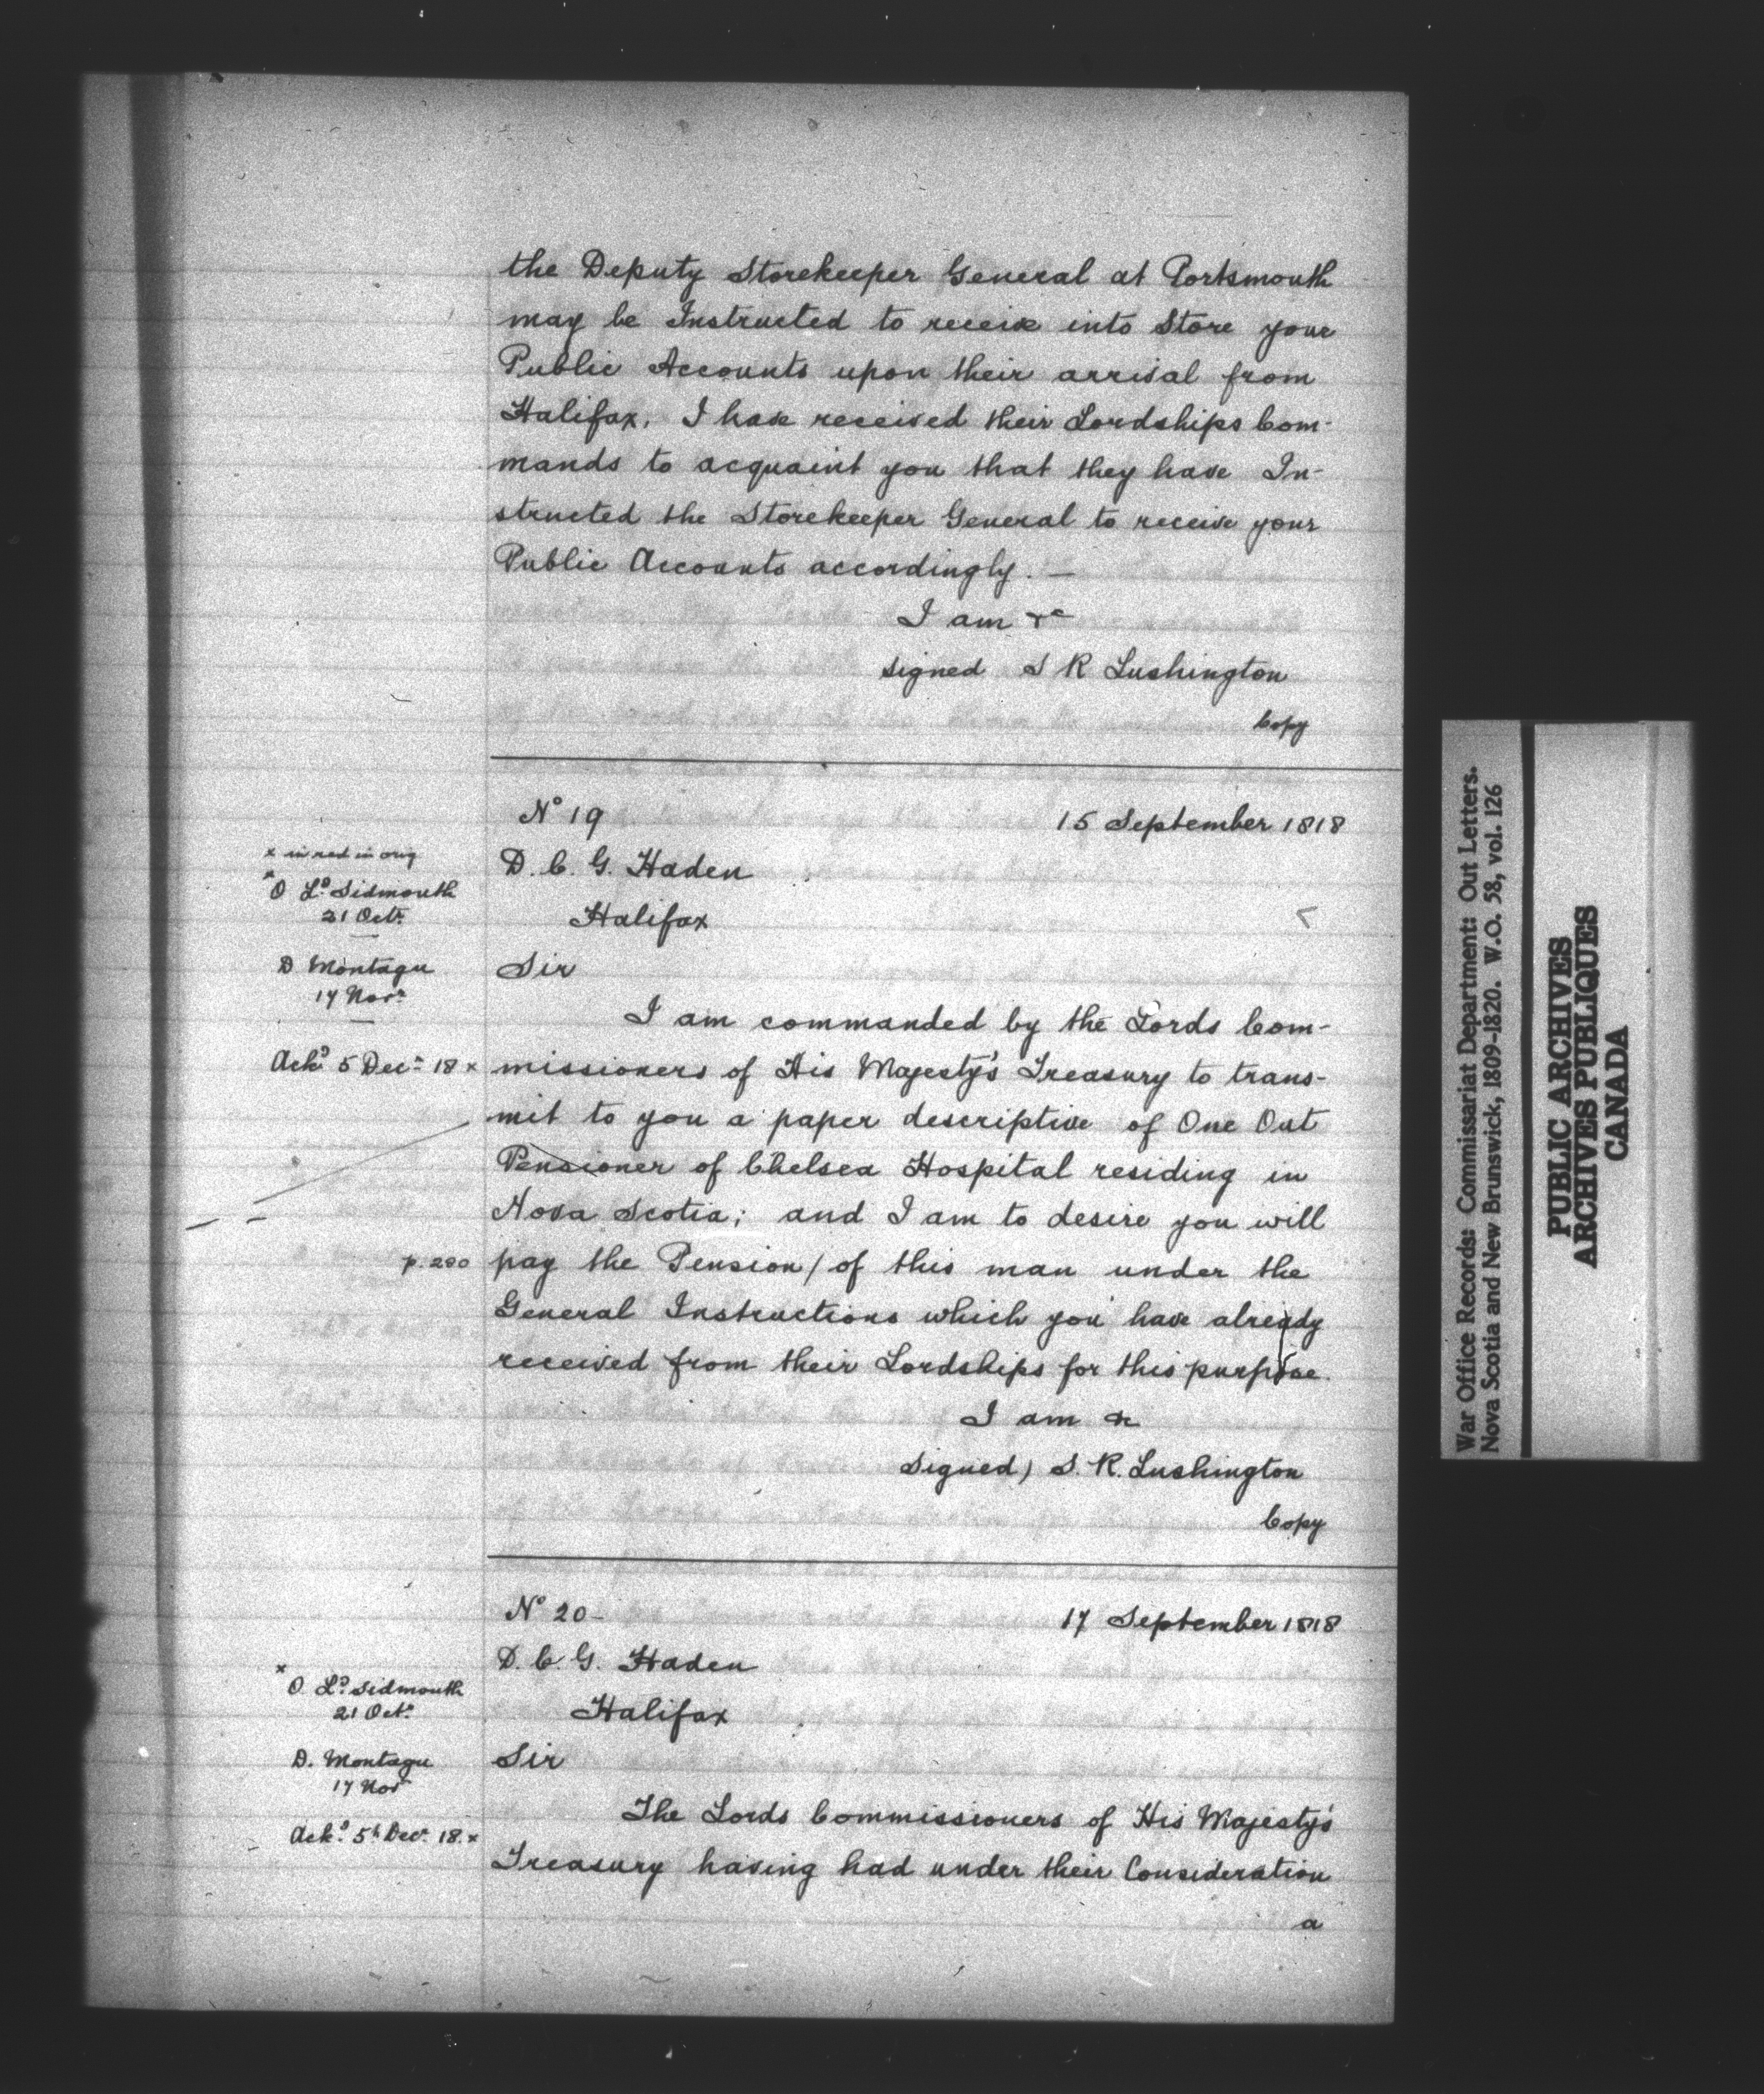 the Deputy Storekeeper General at Portsmouth
may be Instructed to receive into Store your
Public Accounts upon their arrival from
Halifax, I have received their Lordships Com-
mands to acquaint you that they have In-
structed the Storekeeper General to receive your
Public Accounts accordingly. —
I am &c
signed S R Lushington
Copy
No 19
15 September 1818
x in red in orig
D. C. G. Haden
x O Ld. Sidmouth
21 Octr.
Halifax
D Montagu
17 Novr
Sir
I am commanded by the Lords Com-
Ackd. 5 Decr 18 x
missioners of His Majesty's Treasury to trans-
mit to you a paper descriptive of One Out
Pensioner of Chelsea Hospital residing in
Nova Scotia; and I am to desire you will
p. 280
pay the Pension / of this man under the
General Instructions which you have already
received from their Lordships for this purpose.
I am &c
signed) S. R. Lushington
Copy
No 20 -
17 September 1818
D. C. G. Haden
x O. Ld. Sidmouth
21 Octr.
Halifax
D. Montagu
17 Novr
Sir
The Lords Commissioners of His Majesty's
Ackd. 5th Decr. 18. x
Treasury having had under their Consideration
a
War Office Records: Commissariat Department: Out Letters.
Nova Scotia and New Brunswick, 1809-1820. W.O. 58, vol. 126
PUBLIC ARCHIVES
ARCHIVES PUBLIQUES
CANADA